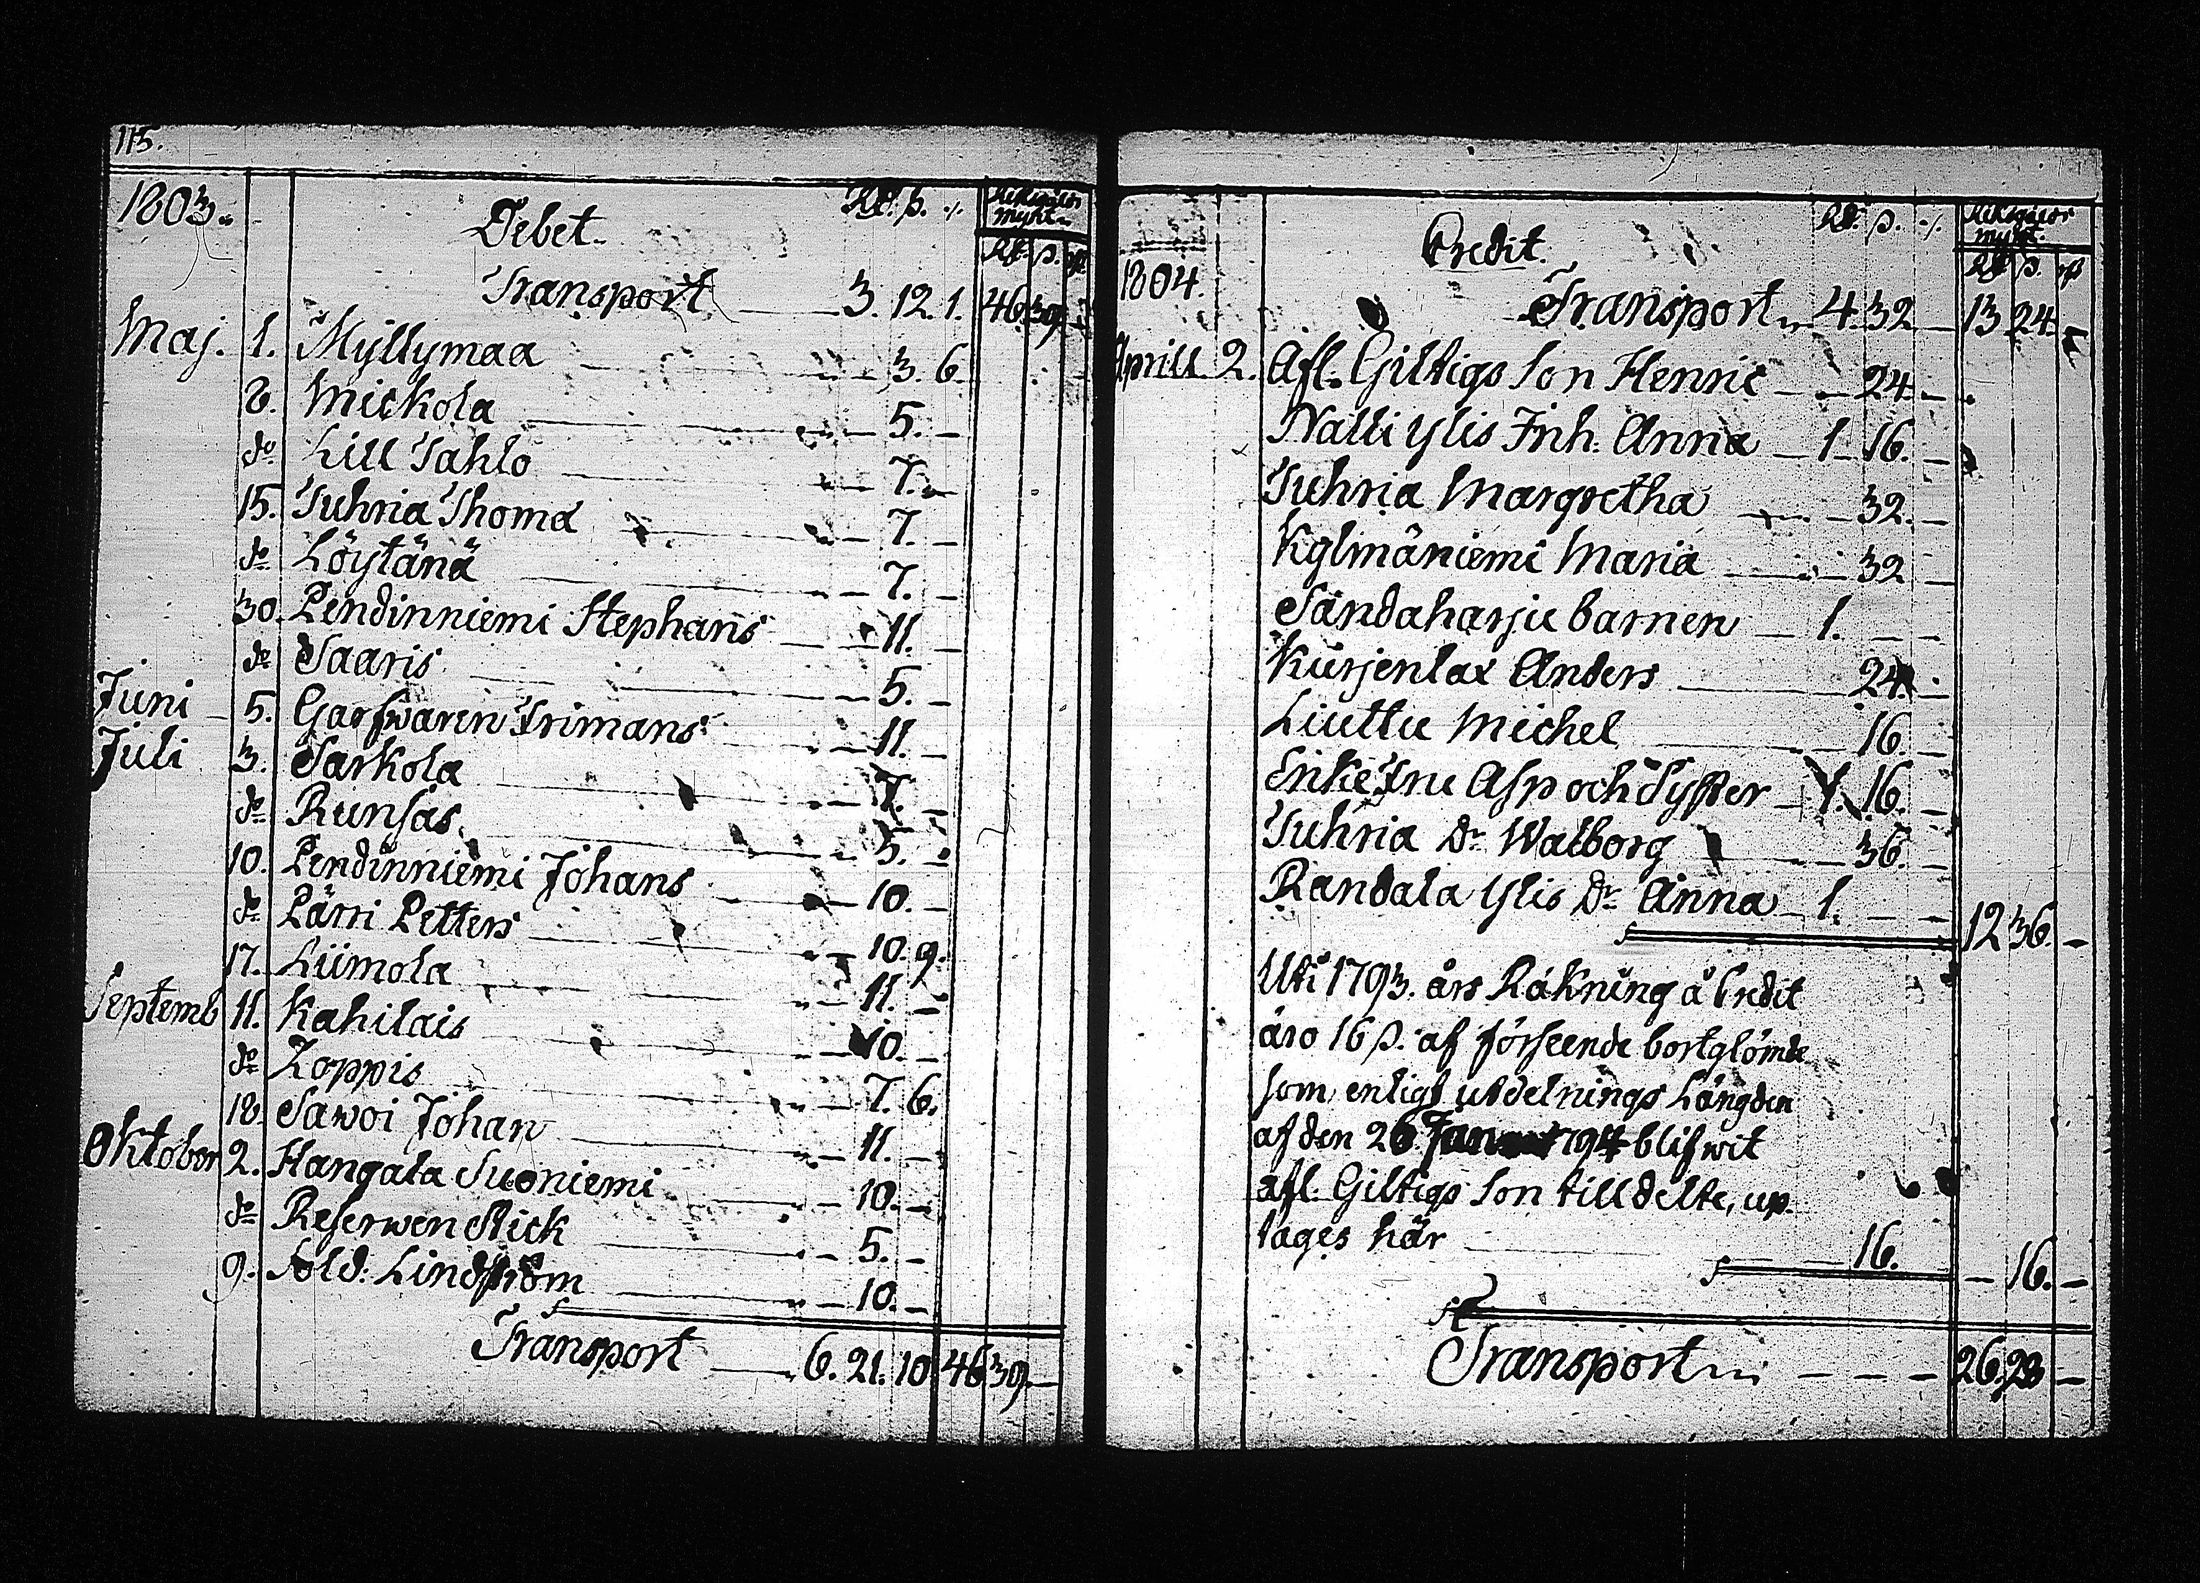 115.
1803. Debet. Rd. ß.
Rd. ß.
Transport 3. 12. 1. 46 39
Maj. 1. Myllymaa 3. 6.
8. Mickola 5. —
do Lill Tahlo 7. —
15. Tuhria Thoma 7. —
do Löytänä 7. —
30. Pendinniemi Stephans 11. —
do Saaris 5. —
Juni 5. Garfwaren Trimans 11. —
Juli 3. Sarkola 7. —
do Runsas 5. —
10. Pendinniemi Johans 10. —
do Pärri Petters 10. 9.
17. Liimola 11. —
Septemb 11. Kahilais 10. —
do Zoppis 7. 6.
18. Sawoi Johan 11. —
Oktober 2. Hangala Suoniemi 10. —
do Reserwen Stick 5. —
9. Sold: Lindström 10. —
Transport 6. 21. 10 46 39 —
Credit. Rd. ß.
Rd ß.
1804.
Transport 4. 32 — 13 24.
Aprill 2. Afl. Giltigs Son Henric 24 —
Nalli Ylis Inh. Anna 1 16. —
Tuhria Margretha 32. —
Kylmäniemi Maria 32 —
Sandaharju barnen 1. — —
Kurjenlax Anders 24 —
Liuttu Michel 16 —
Enke Fru Asp och Syster 1. 16. —
Tuhria Dr Walborg 36. —
Randala Ylis Dr Anna 1. — —
12 36. —
Uti 1793. års Räkning å Credit
äro 16 ß. af förseende bortglömde
som enligt utdelnings Längden
af den 26 1794 blifwit
afl. Giltigs Son tilldelte, up
tages här 16. — 16. —
Transport — — — 26. 28 —